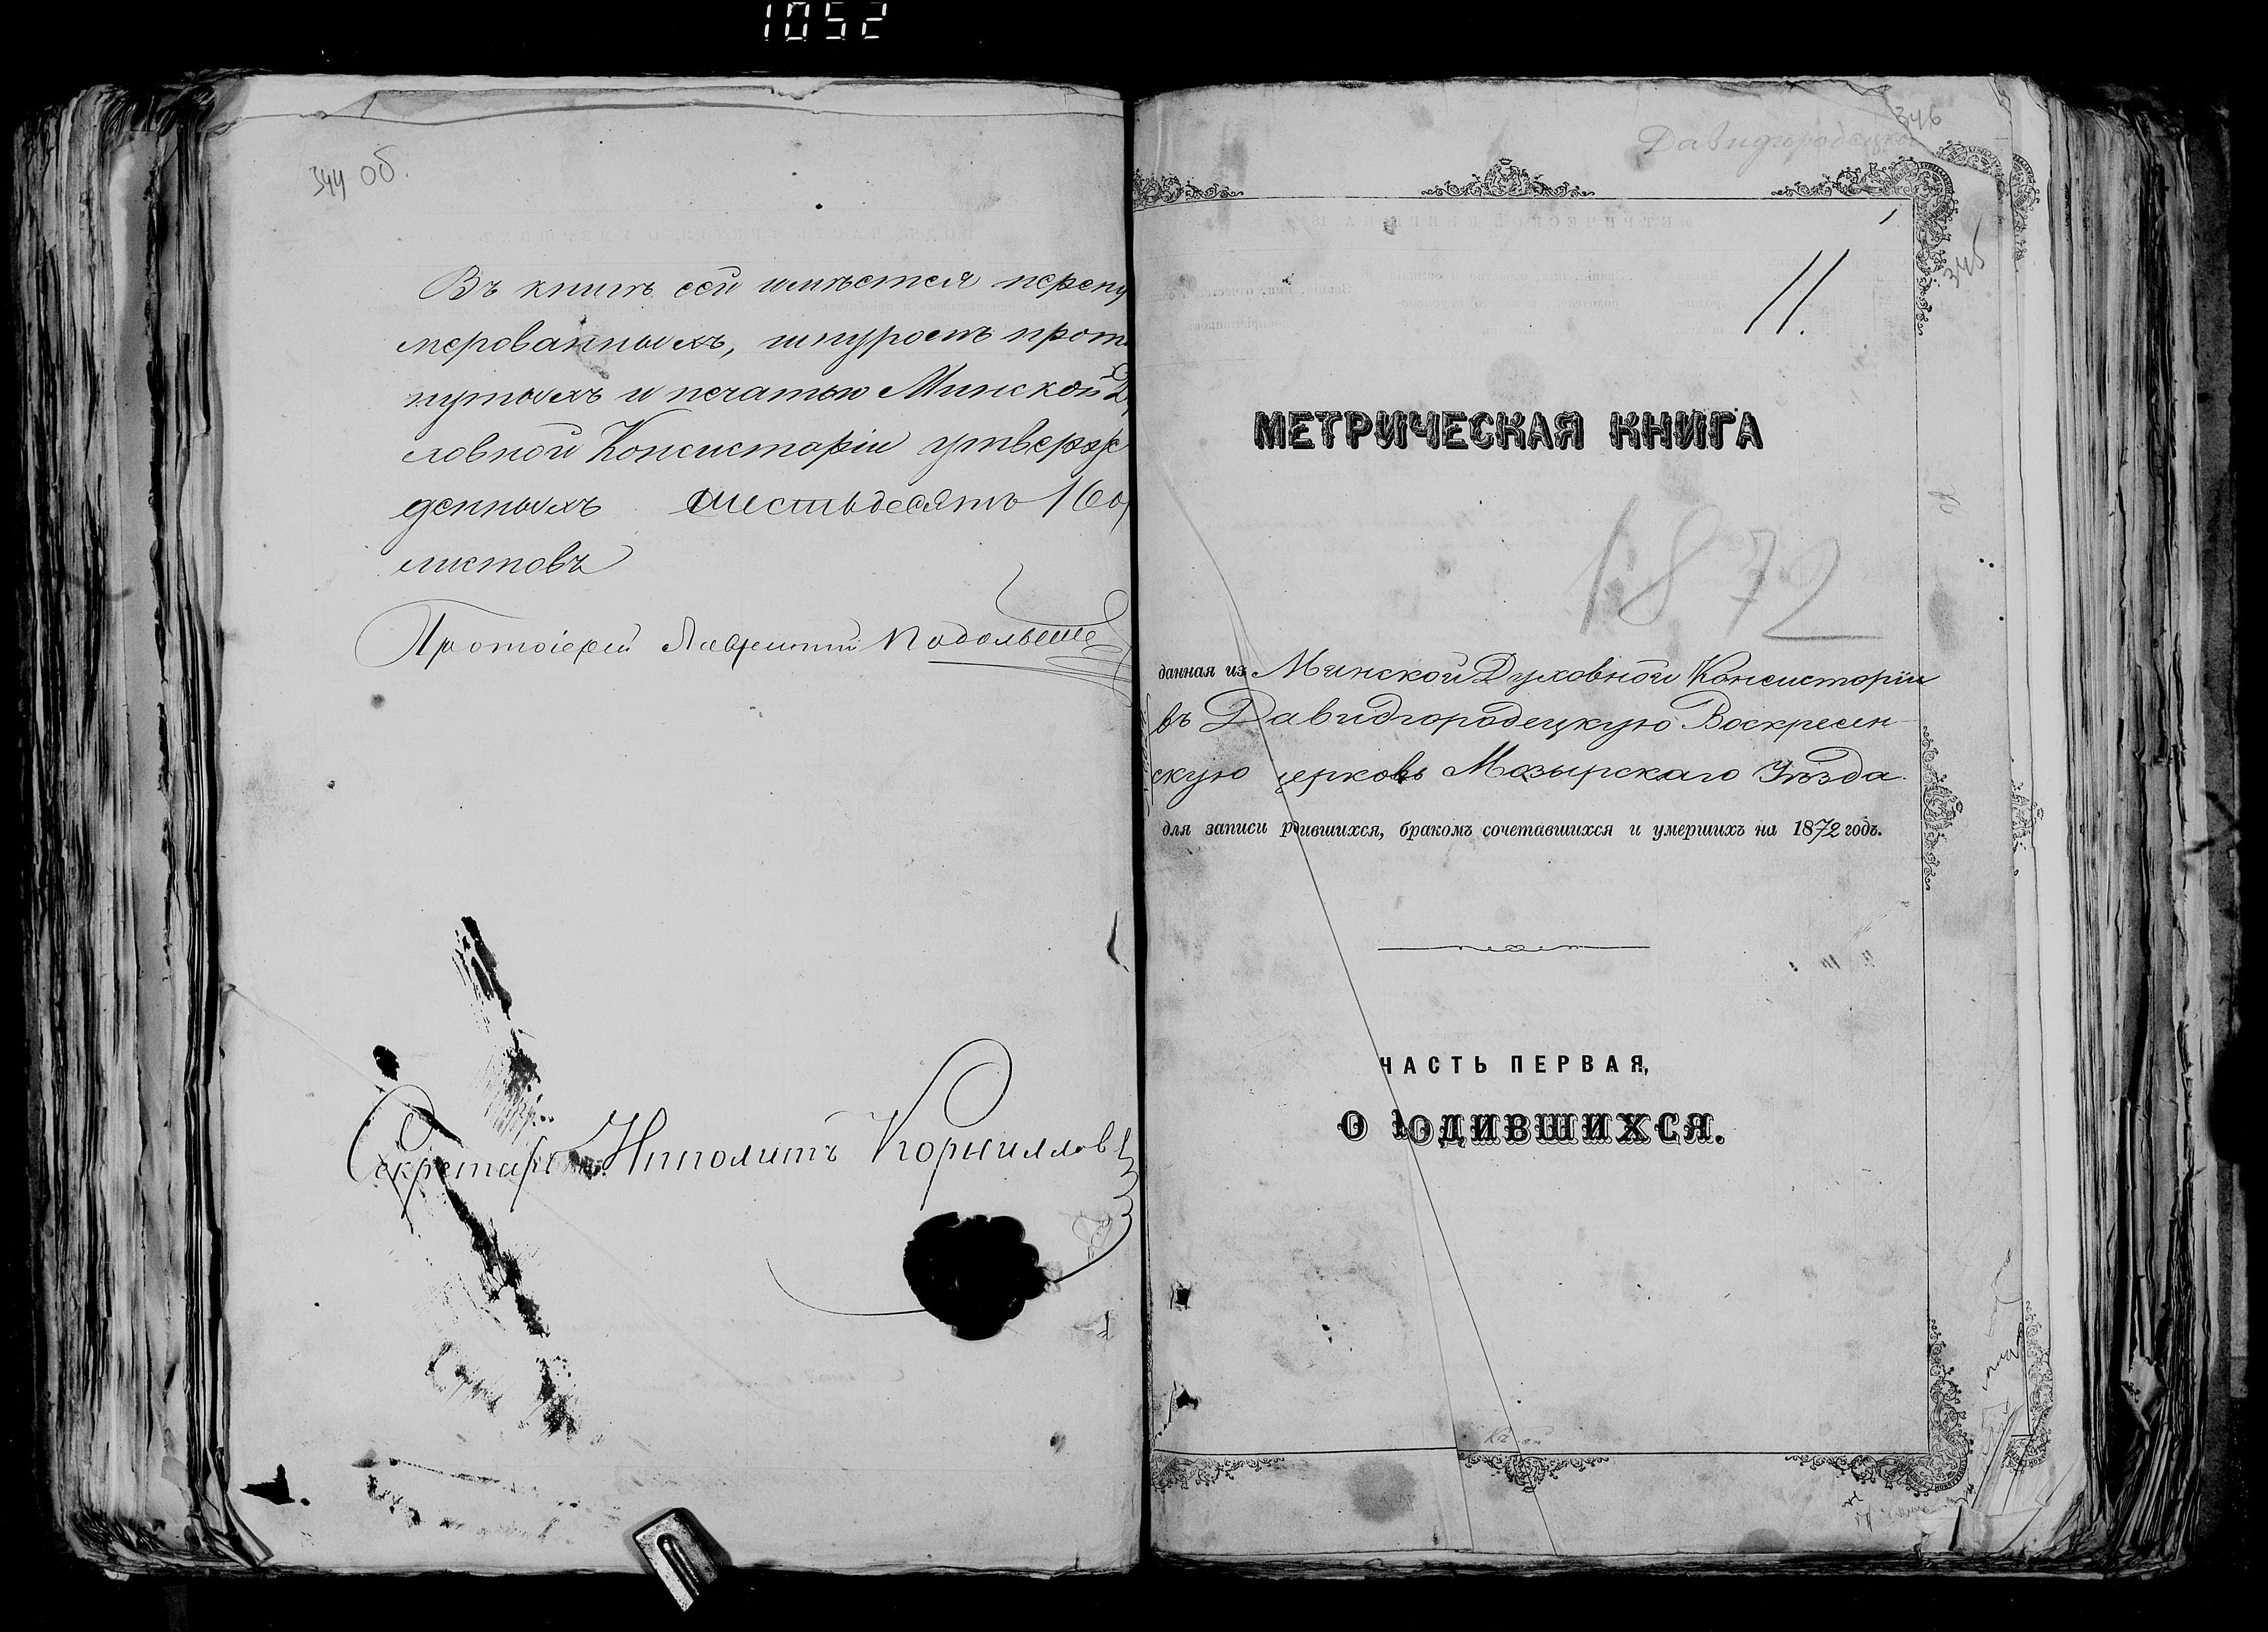 1052
344 об.
Въ книгѣ сей имѣется перену
мерованныхъ, шнуромъ прот
нутыхъ и печатью Минской Д
ховной Консисторіи утверж
денныхъ шестьдесятъ /60/
листовъ
Протоіерей
Секретарь Ипполитъ Корниллов
346
Давидгородецкой
345
11.
МЕТРИЧЕСКАЯ КНИГА
1872
данная из Минской Духовной Консисторіи
въ Давидгородецкую Воскресен
скую церковь Мозырскаго Уѣзда
для записи рившихся, бракомъ сочетавшихся и умершихъ на 1872 годъ.
ЧАСТЬ ПЕРВАЯ,
О ОДИВШИХСЯ.